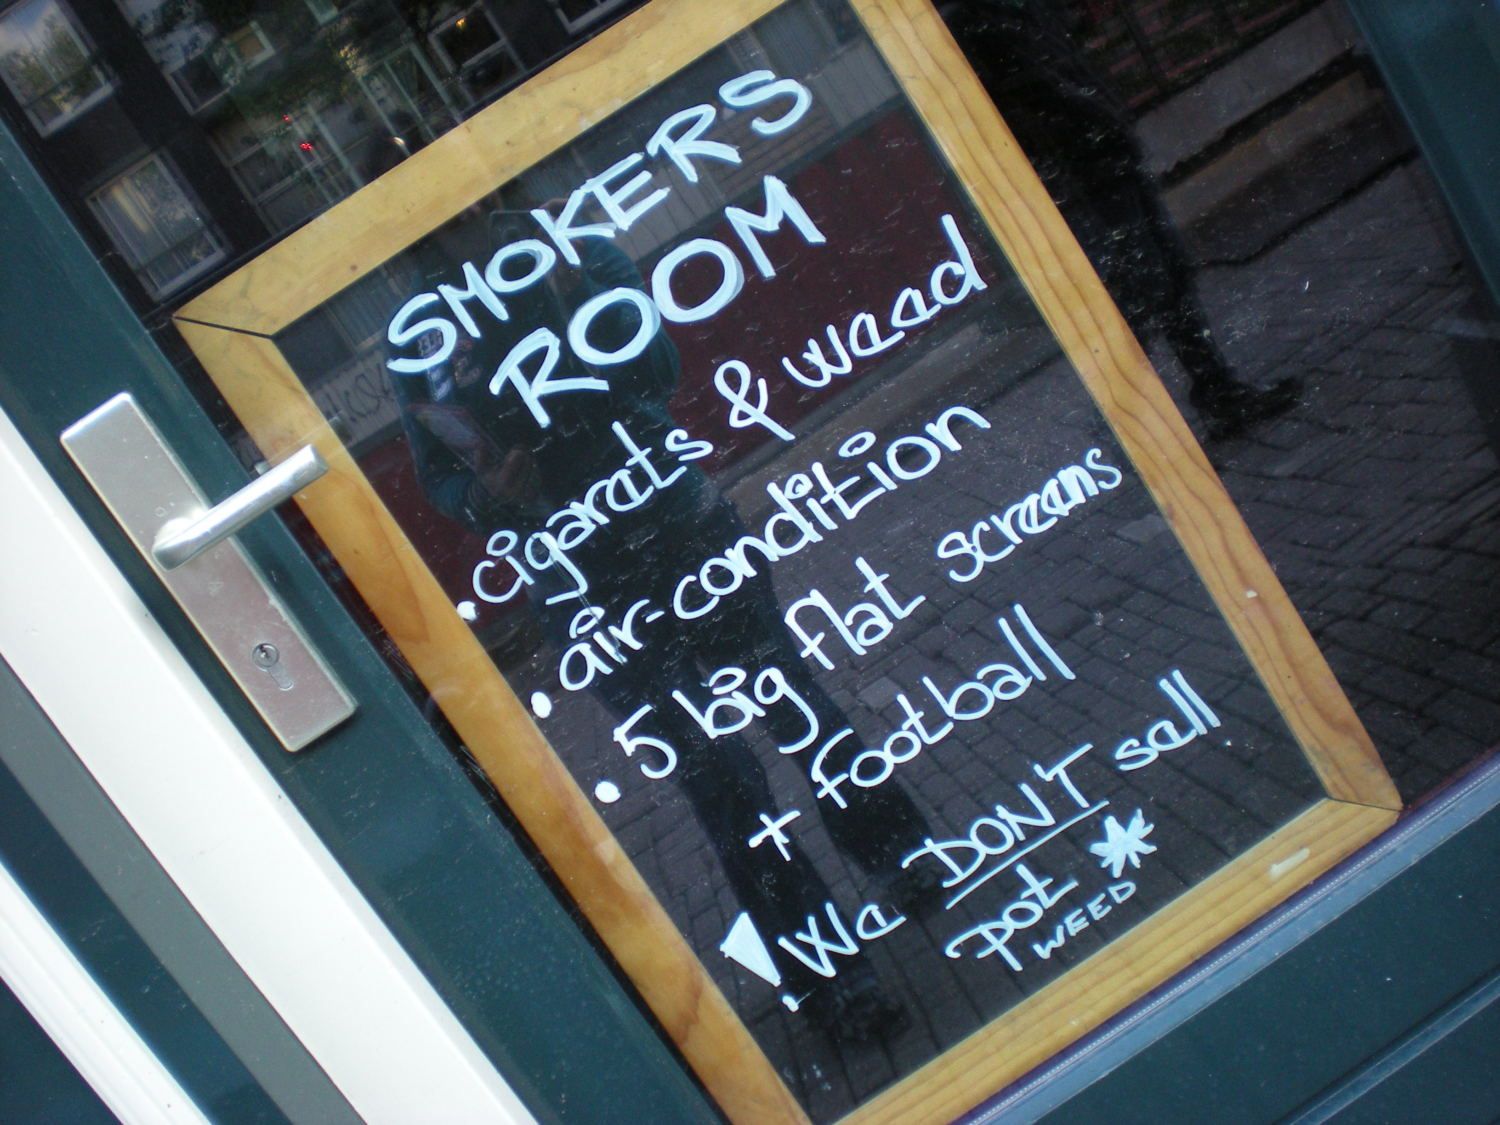 SMOKERS
ROOM
.cigarets & weed
.air-condition
. 5 big flat screens
+ Football
! We DON'T sell
pot
WEED